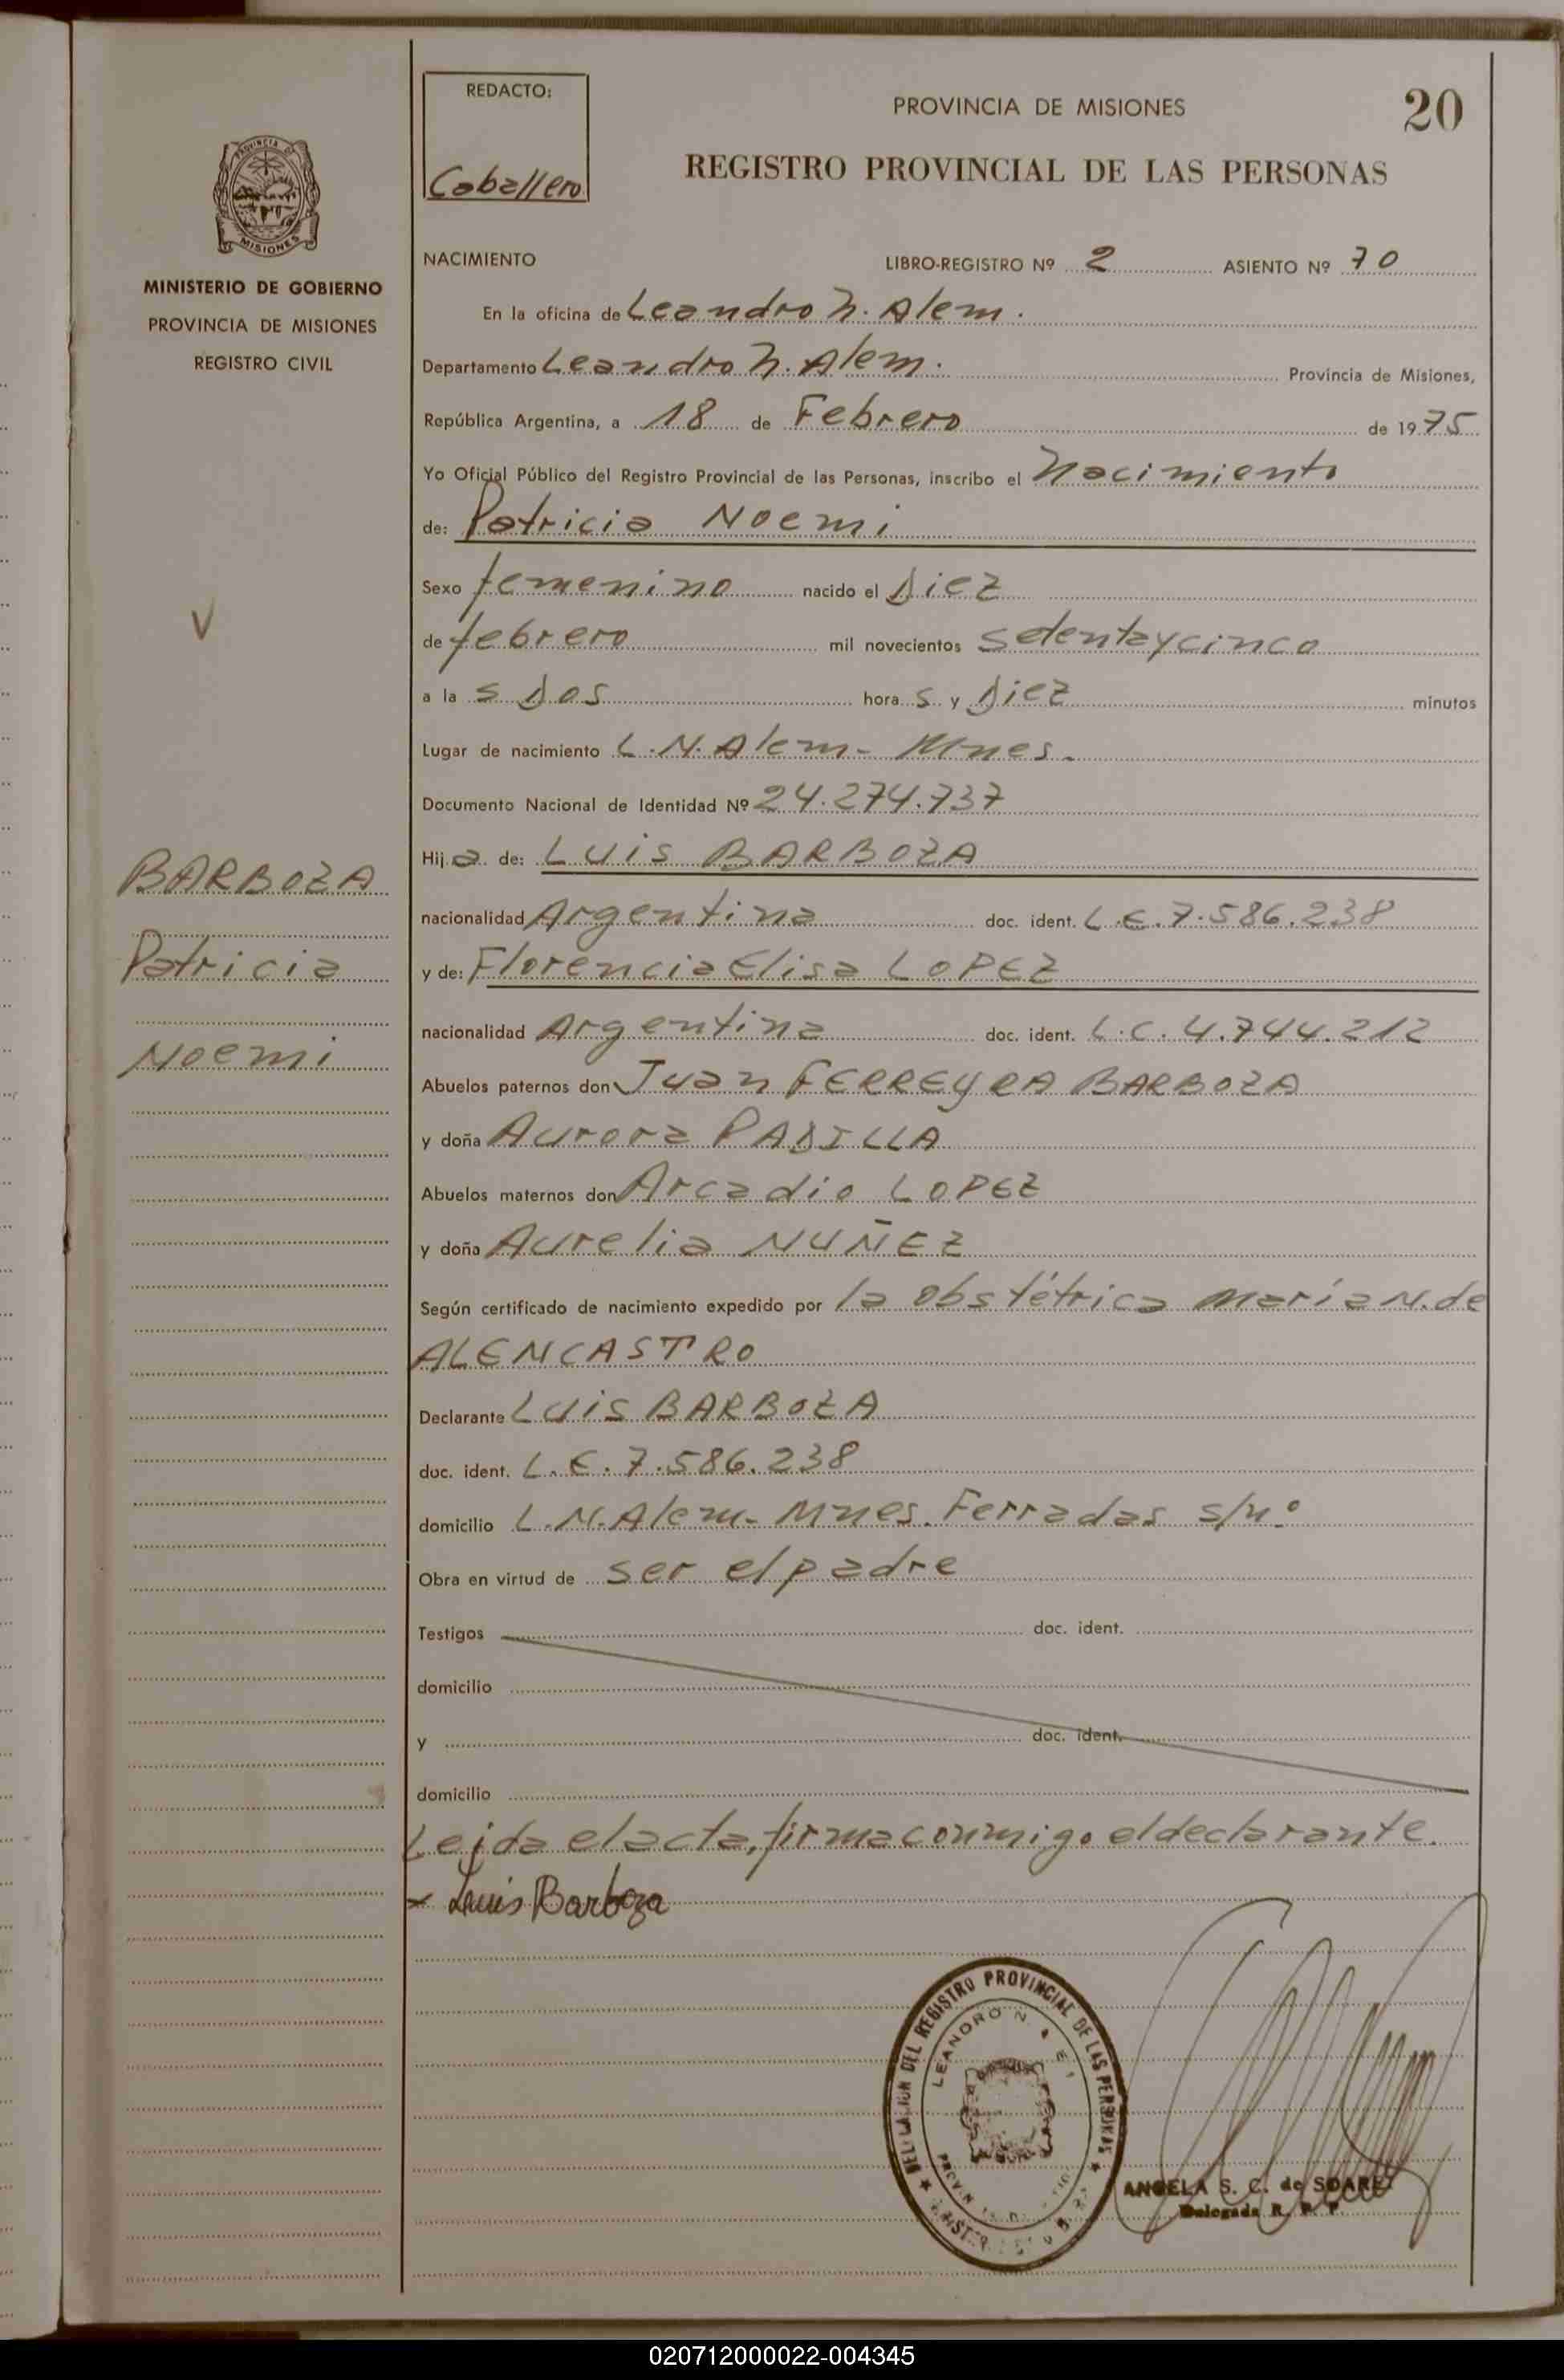 REDACTO:
Caballero
PROVINCIA DE MISIONES
20
REGISTRO PROVINCIAL DE LAS PERSONAS
PROVINCIA DE
MISIONES
MINISTERIO DE GOBIERNO
PROVINCIA DE MISIONES
REGISTRO CIVIL
V
BARBOZA
Patricia
Noemi
NACIMIENTO LIBRO-REGISTRO Nº 2 ASIENTO Nº 70
En la oficina de Leandro N. Alem.
Departamento Leandro N. Alem. Provincia de Misiones,
República Argentina, a 18 de Febrero de 1975
Yo Oficial Público del Registro Provincial de las Personas, inscribo el Nacimiento
de: Patricia Noemi
Sexo femenino nacido el Diez
de febrero mil novecientos setentaycinco
a la s Dos hora s y Diez minutos
Lugar de nacimiento L.N. Alem - Mnes.
Documento Nacional de Identidad Nº 24.274.737
Hij a de: Luis BARBOZA
nacionalidad Argentina doc. ident. L.E. 7.586.238
y de: Florencia Elisa LOPEZ
nacionalidad Argentina doc. ident. L.C. 4.744.212
Abuelos paternos don Juan FERREYRA BARBOZA
y doña Aurora PADILLA
Abuelos maternos don Arcadio LOPEZ
y doña Aurelia NUÑEZ
Según certificado de nacimiento expedido por la obstétrica María N. de
ALENCASTRO
Declarante Luis BARBOZA
doc. ident. L.E. 7.586.238
domicilio L.N. Alem - Mnes. Ferradas s/nº
Obra en virtud de ser el padre
Testigos doc. ident.
domicilio
y doc. ident.
domicilio
Leida el acta, firma conmigo el declarante.
x Luis Barboza
DEL REGISTRO PROVINCIAL DE LAS PERSONAS
LEANDRO N
ANGELA S. C. de SOAREZ
Delegada R. P. P.
020712000022-004345